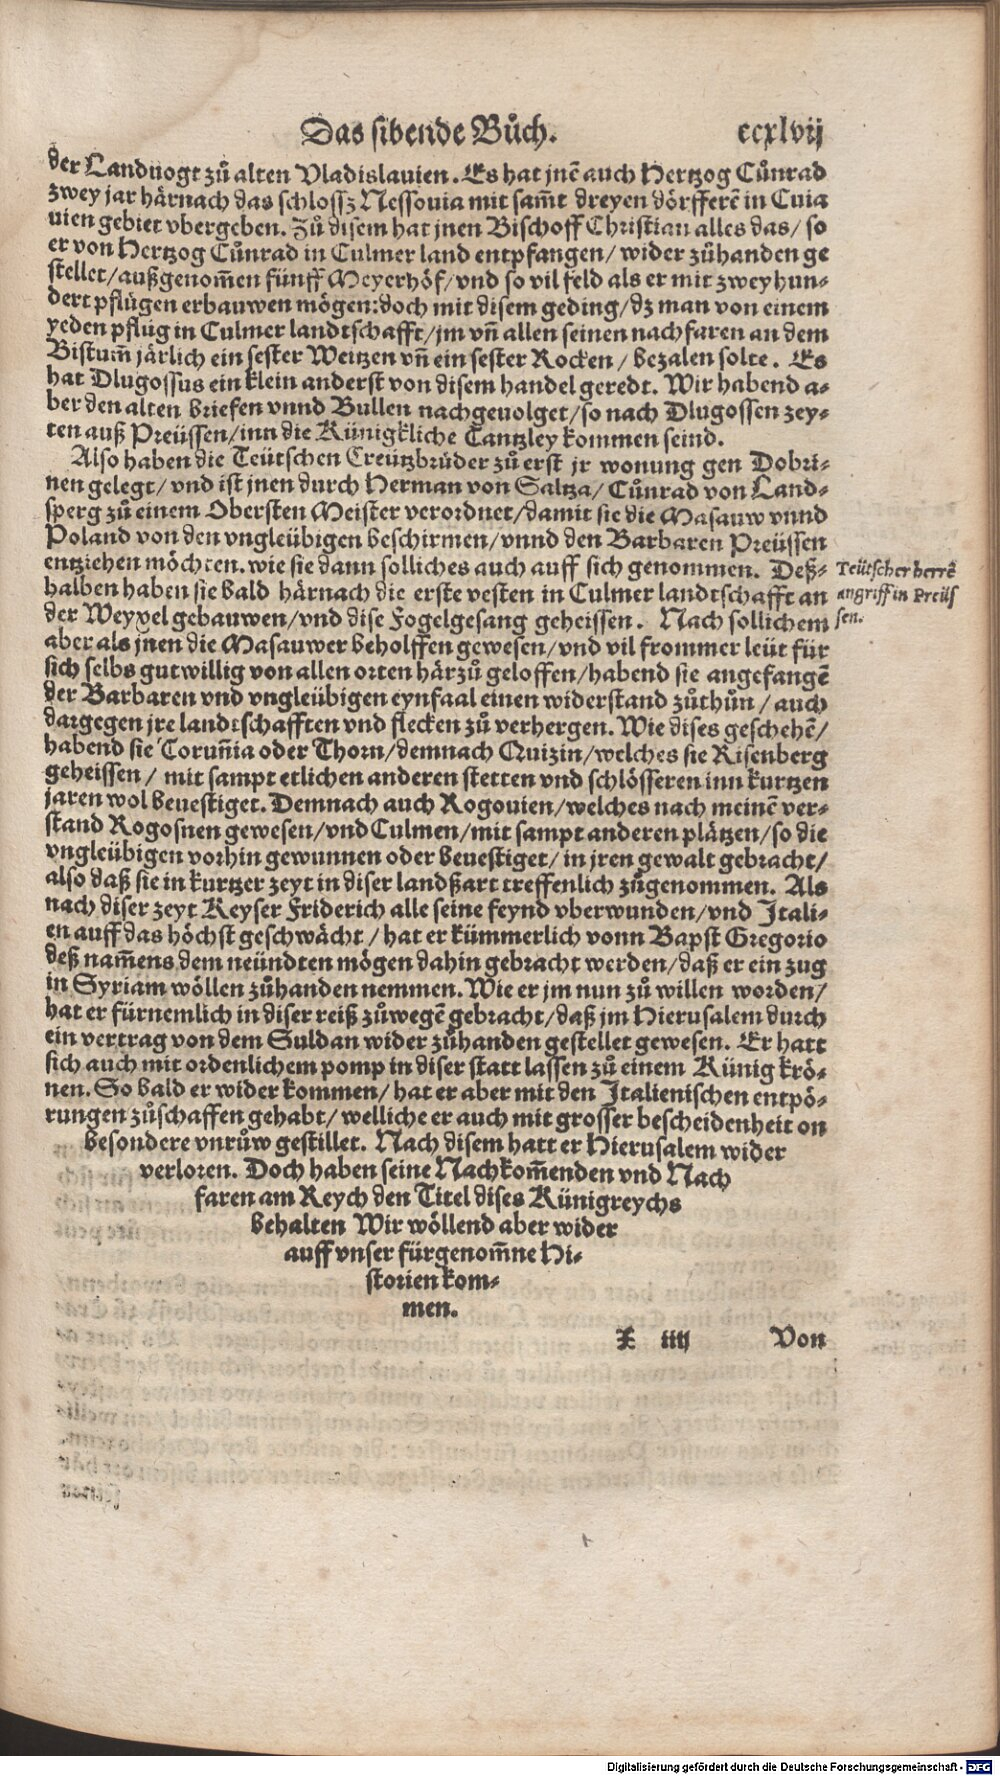 Das sibende Bůch. ccxlvij
der Landuogt zů alten Vladislauien. Es hat jnē auch Hertzog Cůnrad
zwey jar härnach das schlossz Nessouia mit sam̃t dreyen dörfferē in Cuia
uien gebiet vbergeben. Zů disem hat jnen Bischoff Christian alles das/ so
er von Hertzog Cůnrad in Culmer land entpfangen/ wider zůhanden ge
stellet/ außgenom̃en fünff Meyerhöf/ vnd so vil feld als er mit zweyhun-
dert pflügen erbauwen mögen: doch mit disem geding/ dz man von einem
yeden pflůg in Culmer landtschafft/ jm vñ allen seinen nachfaren an dem
Bistum̃ järlich ein sester Weitzen vñ ein sester Rocken/ bezalen solte. Es
hat Dlugossus ein klein anderst von disem handel geredt. Wir habend a-
ber den alten briefen vnnd Bullen nachgeuolget/ so nach Dlugossen zey-
ten auß Preüssen/ inn die Künigkliche Cantzley kommen seind.
Also haben die Teütschen Creützbrüder zů erst jr wonung gen Dobri-
nen gelegt/ vnd ist jnen durch Herman von Saltza/ Cůnrad von Land-
sperg zů einem Obersten Meister verordnet/ damit sie die Masauw vnnd
Poland von den vngleübigen beschirmen/ vnnd den Barbaren Preüssen
entziehen möchten. wie sie dann solliches auch auff sich genommen. Deß-
halben haben sie bald härnach die erste vesten in Culmer landtschafft an
der Weyxel gebauwen/ vnd dise Fogelgesang geheissen. Nach sollichem
Teütscher herrē
angriff in Preüs
sen.
aber als jnen die Masauwer beholffen gewesen/ vnd vil frommer leüt für
sich selbs gutwillig von allen orten härzů geloffen/ habend sie angefangē
der Barbaren vnd vngleübigen eynfaal einen widerstand zůthůn/ auch
dargegen jre landtschafften vnd flecken zů verhergen. Wie dises geschehē/
habend sie Coruñia oder Thorn/ demnach Quizin/ welches sie Risenberg
geheissen/ mit sampt etlichen anderen stetten vnd schlösseren inn kurtzen
jaren wol beuestiget. Demnach auch Rogouien/ welches nach meinē ver-
stand Rogosnen gewesen/ vnd Culmen/ mit sampt anderen plätzen/ so die
vngleübigen vorhin gewunnen oder beuestiget/ in jren gewalt gebracht/
also daß sie in kurtzer zeyt in diser landßart treffenlich zůgenommen. Als
nach diser zeyt Keyser Friderich alle seine feynd vberwunden/ vnd Itali-
en auff das höchst geschwächt/ hat er kümmerlich vonn Bapst Gregorio
deß nam̃ens dem neündten mögen dahin gebracht werden/ daß er ein zug
in Syriam wöllen zůhanden nemmen. Wie er jm nun zů willen worden/
hat er fürnemlich in diser reiß zůwegē gebracht/ daß jm Hierusalem durch
ein vertrag von dem Suldan wider zůhanden gestellet gewesen. Er hatt
sich auch mit ordenlichem pomp in diser statt lassen zů einem Künig krö-
nen. So bald er wider kommen/ hat er aber mit den Italienischen entpö-
rungen zůschaffen gehabt/ welliche er auch mit grosser bescheidenheit on
besondere vnrůw gestillet. Nach disem hatt er Hierusalem wider
verloren. Doch haben seine Nachkom̃enden vnd Nach
faren am Reych den Titel dises Künigreychs
behalten Wir wöllend aber wider
auff vnser fürgenom̃ne Hi-
storien kom-
men.
X iiij Von
Digitalisierung gefördert durch die Deutsche Forschungsgemeinschaft - DFG